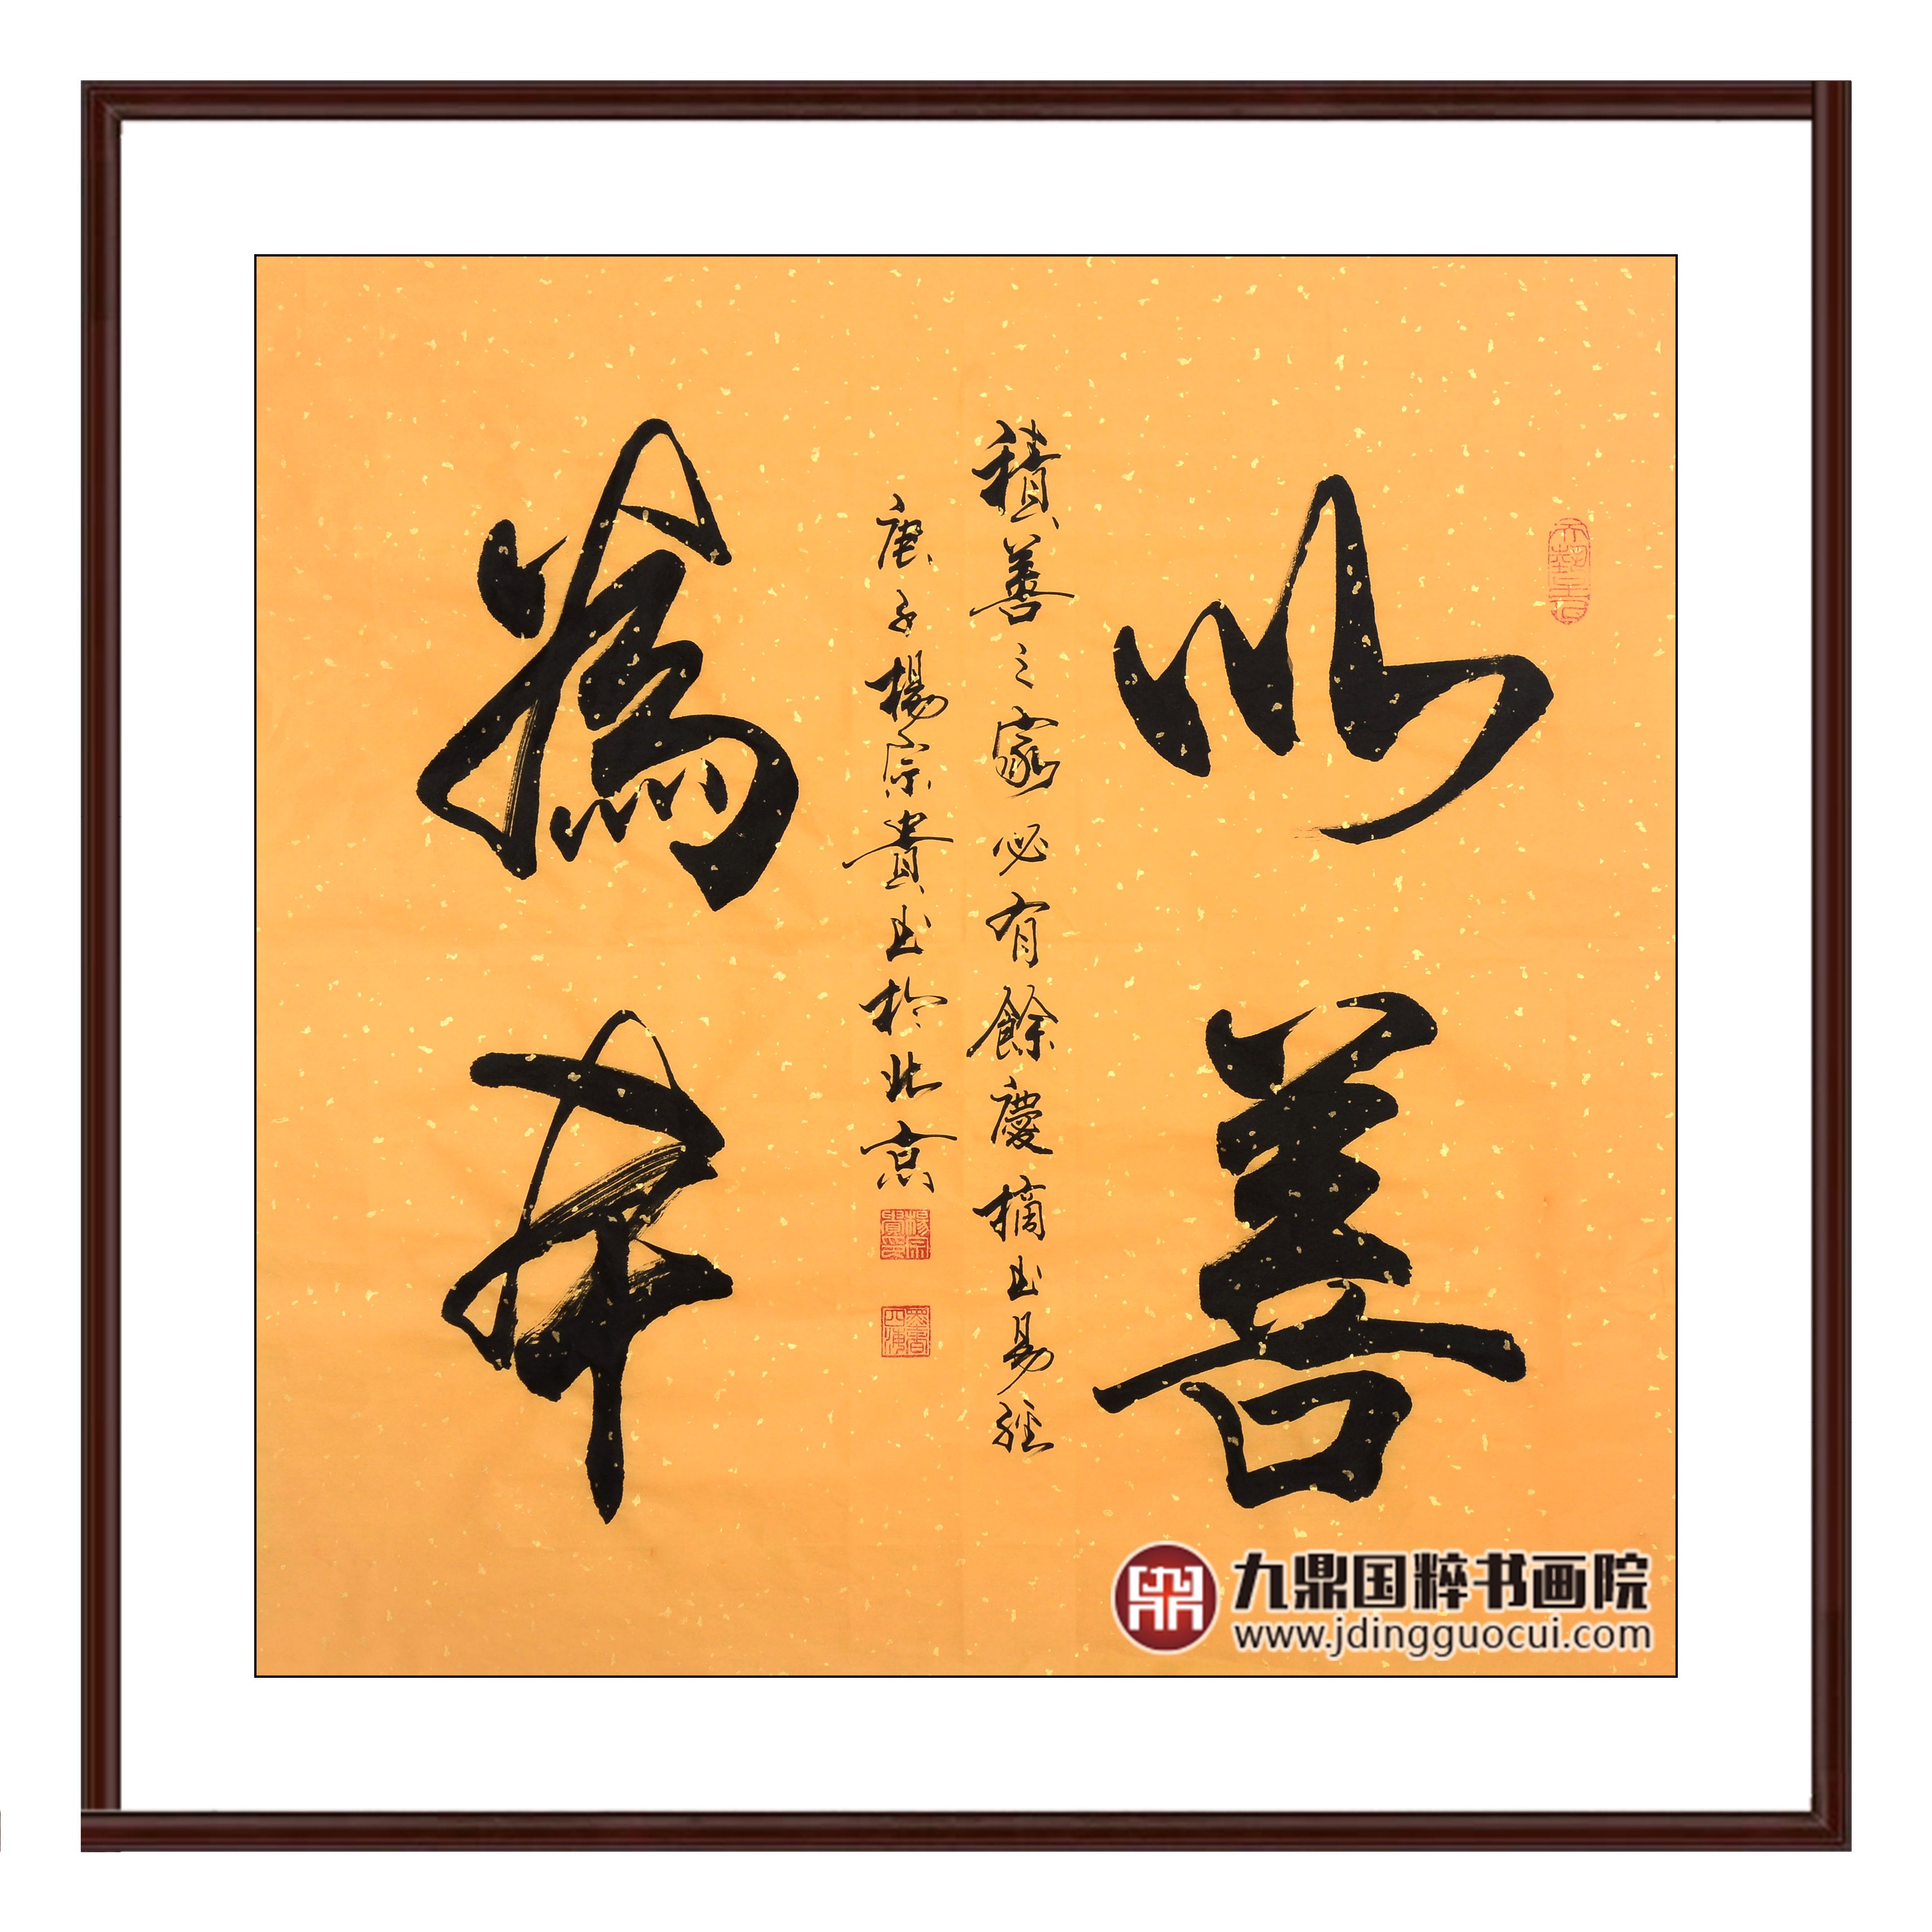 以善
積善之家必有餘慶摘書易經
庚子楊宗貴書於北京
楊宗貴印
為本
九鼎国粹书画院
www.jdingguocui.com